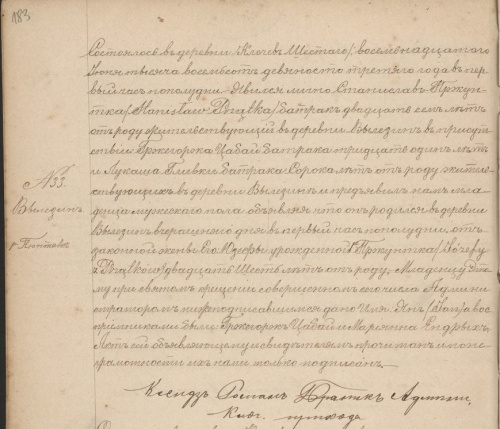 183
Состоялось въ деревни Ключевъ Шестаго/: восемьнадцатаго
Іюня тысяча восемьсотъ девяносто третяго года въ пер
вый часъ пополудни. Явился лично Станиславъ Пржуп
тка / Батракъ двадцать семь лѣтъ
отъ роду жительствующій въ деревни Вылезинъ въ присут
ствіи Гржегоржа Цабай Батрака тридцать одинъ лѣтъ
и Лукаша Гливки Батрака Сорока лѣтъ отъ роду жители
ствующихъ въ деревни Вылезинъ и предъявилъ намъ мла
денца мужескаго пола объявляя что онъ родился въ деревни
№ 33.
Вылезинъ
Вылезинъ вчерашняго дня въ первый часъ пополудни, отъ
законной жены Его Юзефы урожденной
двадцать шесть лѣтъ отъ роду, Младенцу Это
му при святомъ крещеніи совершенномъ сего числа Админи
страторомъ нижеподписавшимся дано Имя Янъ /Иванъ/ а вос
пріемниками были Гржегоржъ Цабай и Марянна Ендрыхъ.
Актъ сей объявляющему и свидѣтелямъ прочитанъ и по не
грамотности ихъ нами только подписанъ.
Ксендзъ Романъ Админи.
прихода